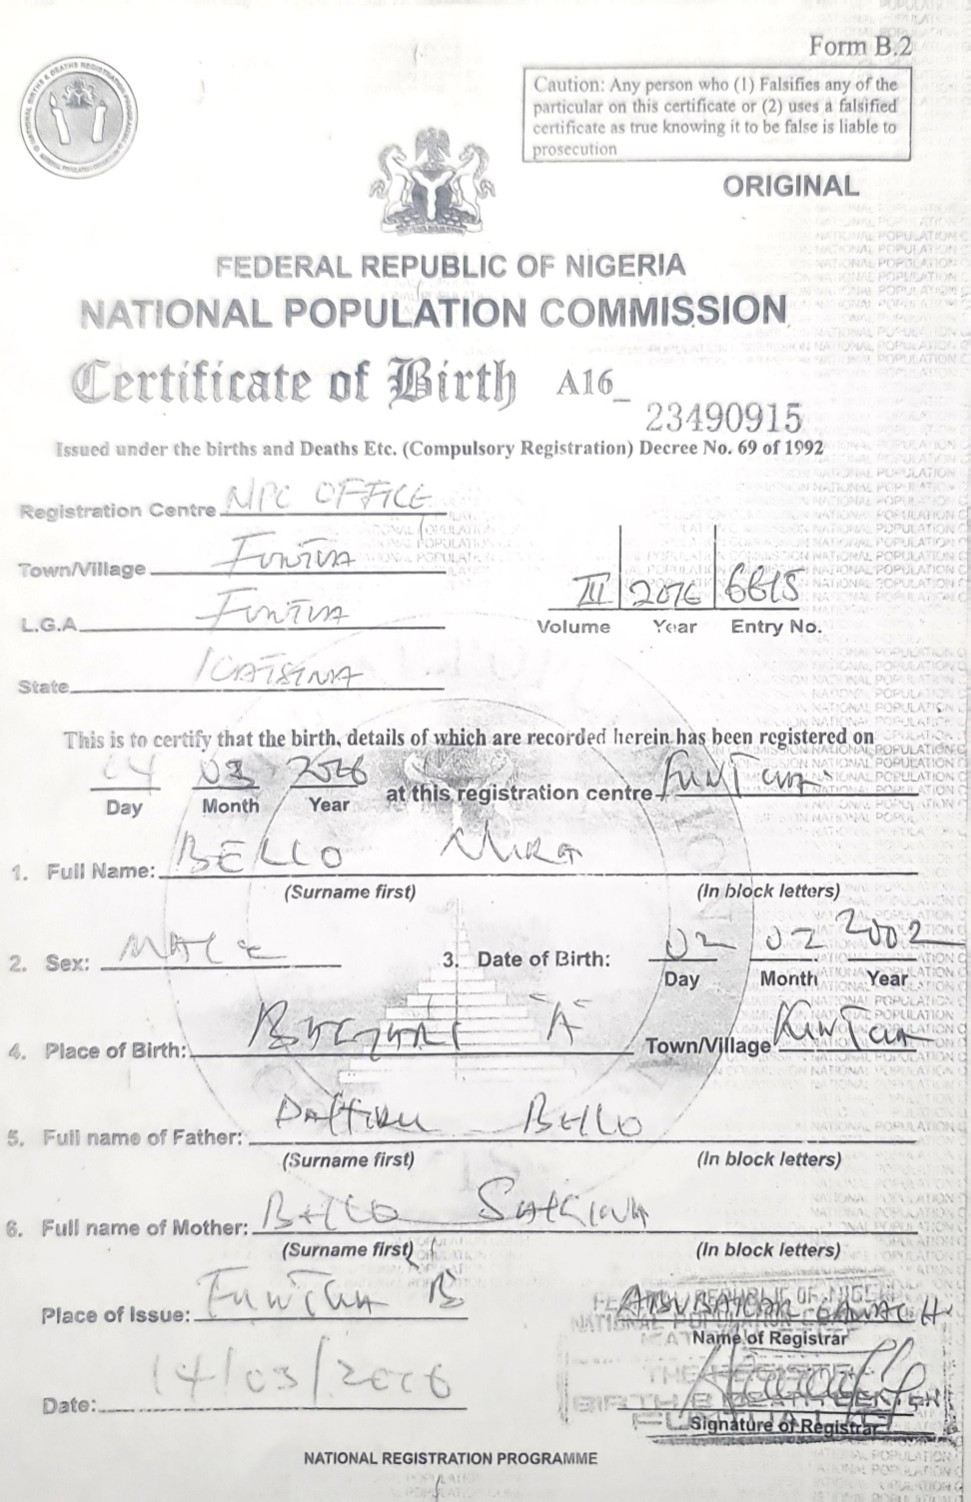 Form B.2
Caution: Any person who (1) Falsifies any of the
particular on this certificate or (2) uses a falsified
certificate as true knowing it to be false is liable to
prosecution
ORIGINAL
FEDERAL REPUBLIC OF NIGERIA
NATIONAL POPULATION COMMISSION
Certificate of Birth A16_
23490915
Issued under the births and Deaths Etc. (Compulsory Registration) Decree No. 69 of 1992
Registration Centre NPC OFFICE
Town/Village FUNTUA
L.G.A FUNTUA
III 6615
Volume Year Entry No.
State KATSINA
This is to certify that the birth, details of which are recorded herein has been registered on
03
Day Month Year at this registration centre FUNTUA
1. Full Name: BELLO
(Surname first) (In block letters)
2. Sex: MALE 3. Date of Birth: 02 02 2002
Day Month Year
4. Place of Birth: "A" Town/Village FUNTUA
5. Full name of Father: BELLO
(Surname first) (In block letters)
6. Full name of Mother: BELLO
(Surname first) (In block letters)
Place of Issue: FUNTUA B
Name of Registrar
Date: 14/03/
Signature of Registrar
NATIONAL REGISTRATION PROGRAMME